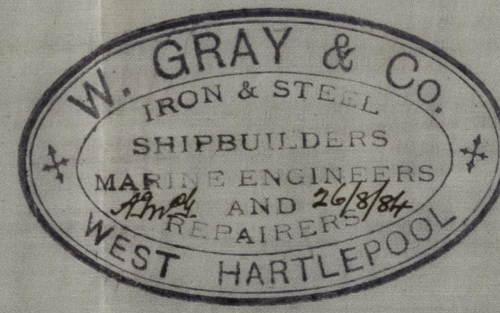 W. GRAY & Co.
IRON & STEEL
SHIPBUILDERS
MARINE ENGINEERS
AND 26/8/84
REPAIRERS
WEST HARTLEPOOL